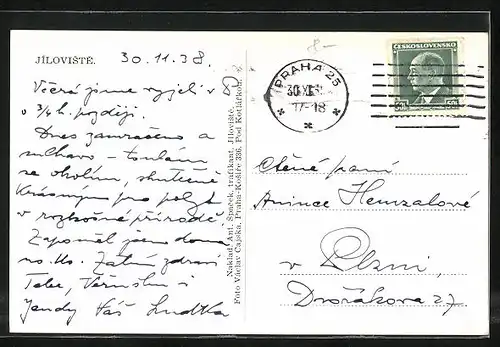 JÍLOVIŠTĚ. 30.11.38.
8-
Včera jsme vyjeli v
v 3/4 h. později.
Dnes zamračeno a
sucho - toulám
se okolím, skutečně
krásným pro pobyt
v rozkošné přírodě.
Zapomněl jsem doma
Zatím zdraví
Tebe, Věrušku i
Jendy Váš Ludva
Naklad. Ant. Špaček, trafikant, Jíloviště.
Foto Václav Čapska, Praha-Košíře 336, Pod Kotlářkou.
PRAHA 25
30.XI.
17-18
ČESKOSLOVENSKO
50h 50h
Ctěné paní
Anince Hemzalové
v Plzni,
Dvořákova 27